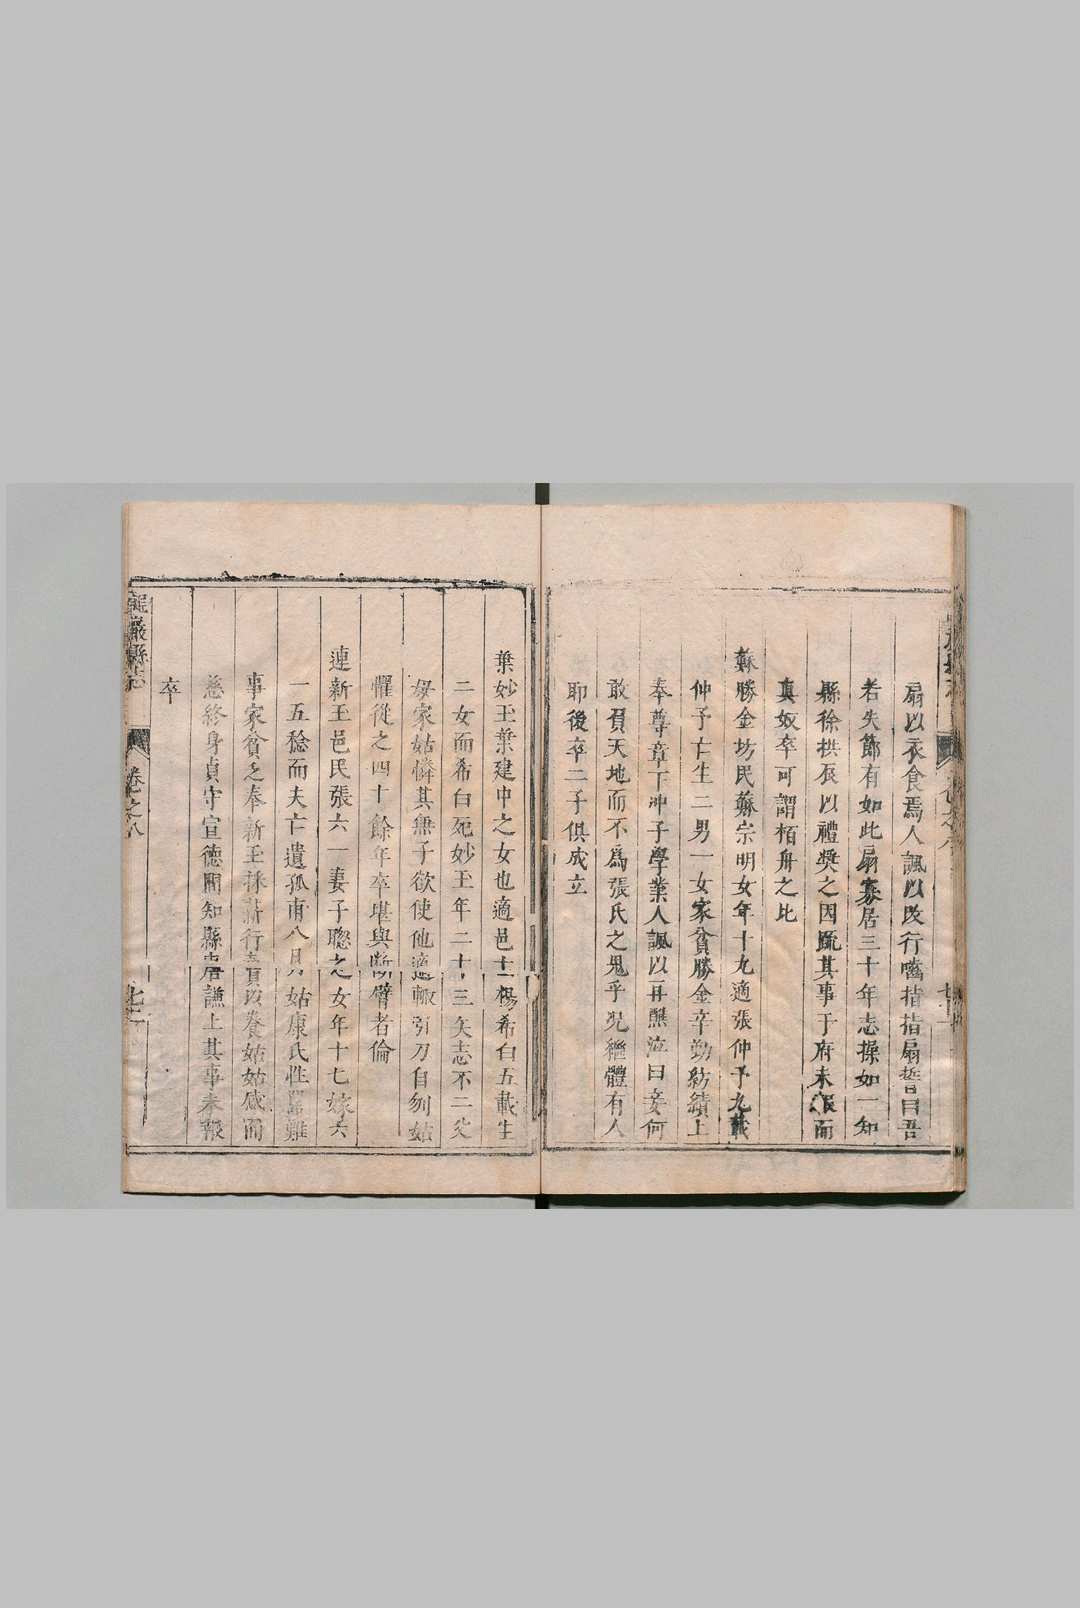 扇以衣食焉人諷以改行嚙指指扇誓曰吾
若失節有如此扇寡居三十年志操如一知
縣徐拱辰以禮獎之因疏其事于府未報而
真奴卒可謂栢舟之比
蘇勝金坊民蘇宗明女年十九適張仲子九載
仲子亡生二男一女家貧勝金辛勤紡績上
奉尊章下冲子學業人諷以再醮泣曰妾何
敢負天地而不為張氏之鬼乎况繼體有人
耶後卒二子俱成立
葉妙玉葉建中之女也適邑士楊希白五載生
二女而希白死妙玉年二十三矢志不二父
母家姑憐其無子欲使他適輙引刀自刎姑
懼從之四十餘年卒堪與斷臂者倫
連新玉邑民張六一妻子聰之女年十七嫁六
一五稔而夫亡遺孤甫八月姑康氏性嚴難
事家貧乏奉新玉採薪行賣以養姑姑感而
慈終身貞守宣德間知縣唐謙上其事未報
卒
龍巖縣志
卷之八